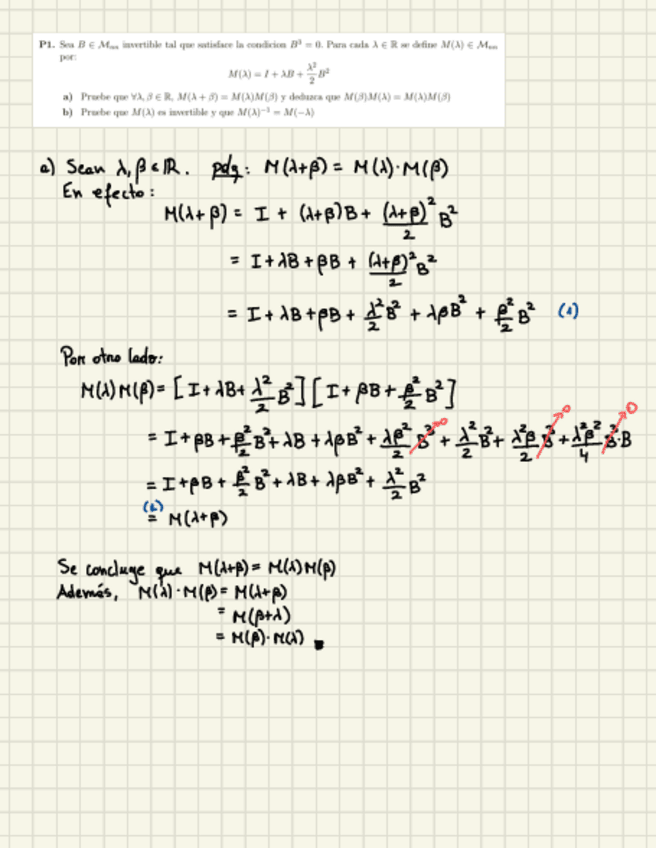 P1. Sea B ∈ M_nn invertible tal que satisface la condicion B³ = 0. Para cada λ ∈ ℝ se define M(λ) ∈ M_nn
por:
M(λ) = I + λB + λ²/2 B²
a) Pruebe que ∀λ, β ∈ ℝ, M(λ + β) = M(λ)M(β) y deduzca que M(β)M(λ) = M(λ)M(β)
b) Pruebe que M(λ) es invertible y que M(λ)⁻¹ = M(−λ)
a) Sean λ, β ∈ ℝ. pdq: M(λ+β) = M(λ)·M(β)
En efecto:
M(λ+β) = I + (λ+β)B + (λ+β)²/2 B²
= I + λB + βB + (λ+β)²/2 B²
= I + λB + βB + λ²/2 B² + λβB² + β²/2 B² (1)
Por otro lado:
M(λ)M(β) = [I + λB + λ²/2 B²][I + βB + β²/2 B²]
= I + βB + β²/2 B² + λB + λβB² + λβ²/2 B³→0 + λ²/2 B² + λ²β/2 B³→0 + λ²β²/4 B³·B→0
= I + βB + β²/2 B² + λB + λβB² + λ²/2 B²
(1)
= M(λ+β)
Se concluye que M(λ+β) = M(λ)M(β)
Además, M(λ)·M(β) = M(λ+β)
= M(β+λ)
= M(β)·M(λ) ■